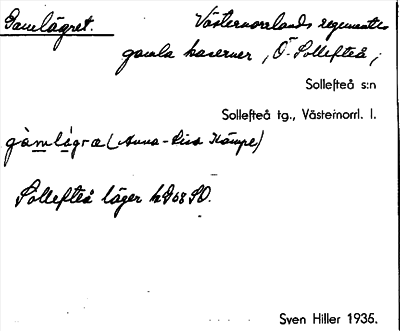 Gamlägret. Västernorrlands regementes
gamla kaserner, Ö. Sollefteå;
Sollefteå s:n
Sollefteå tg., Västernorrl. l.
gàmlágra (Anna-Lisa Kämpe)
Sollefteå läger hd 68 SO.
Sven Hiller 1935.